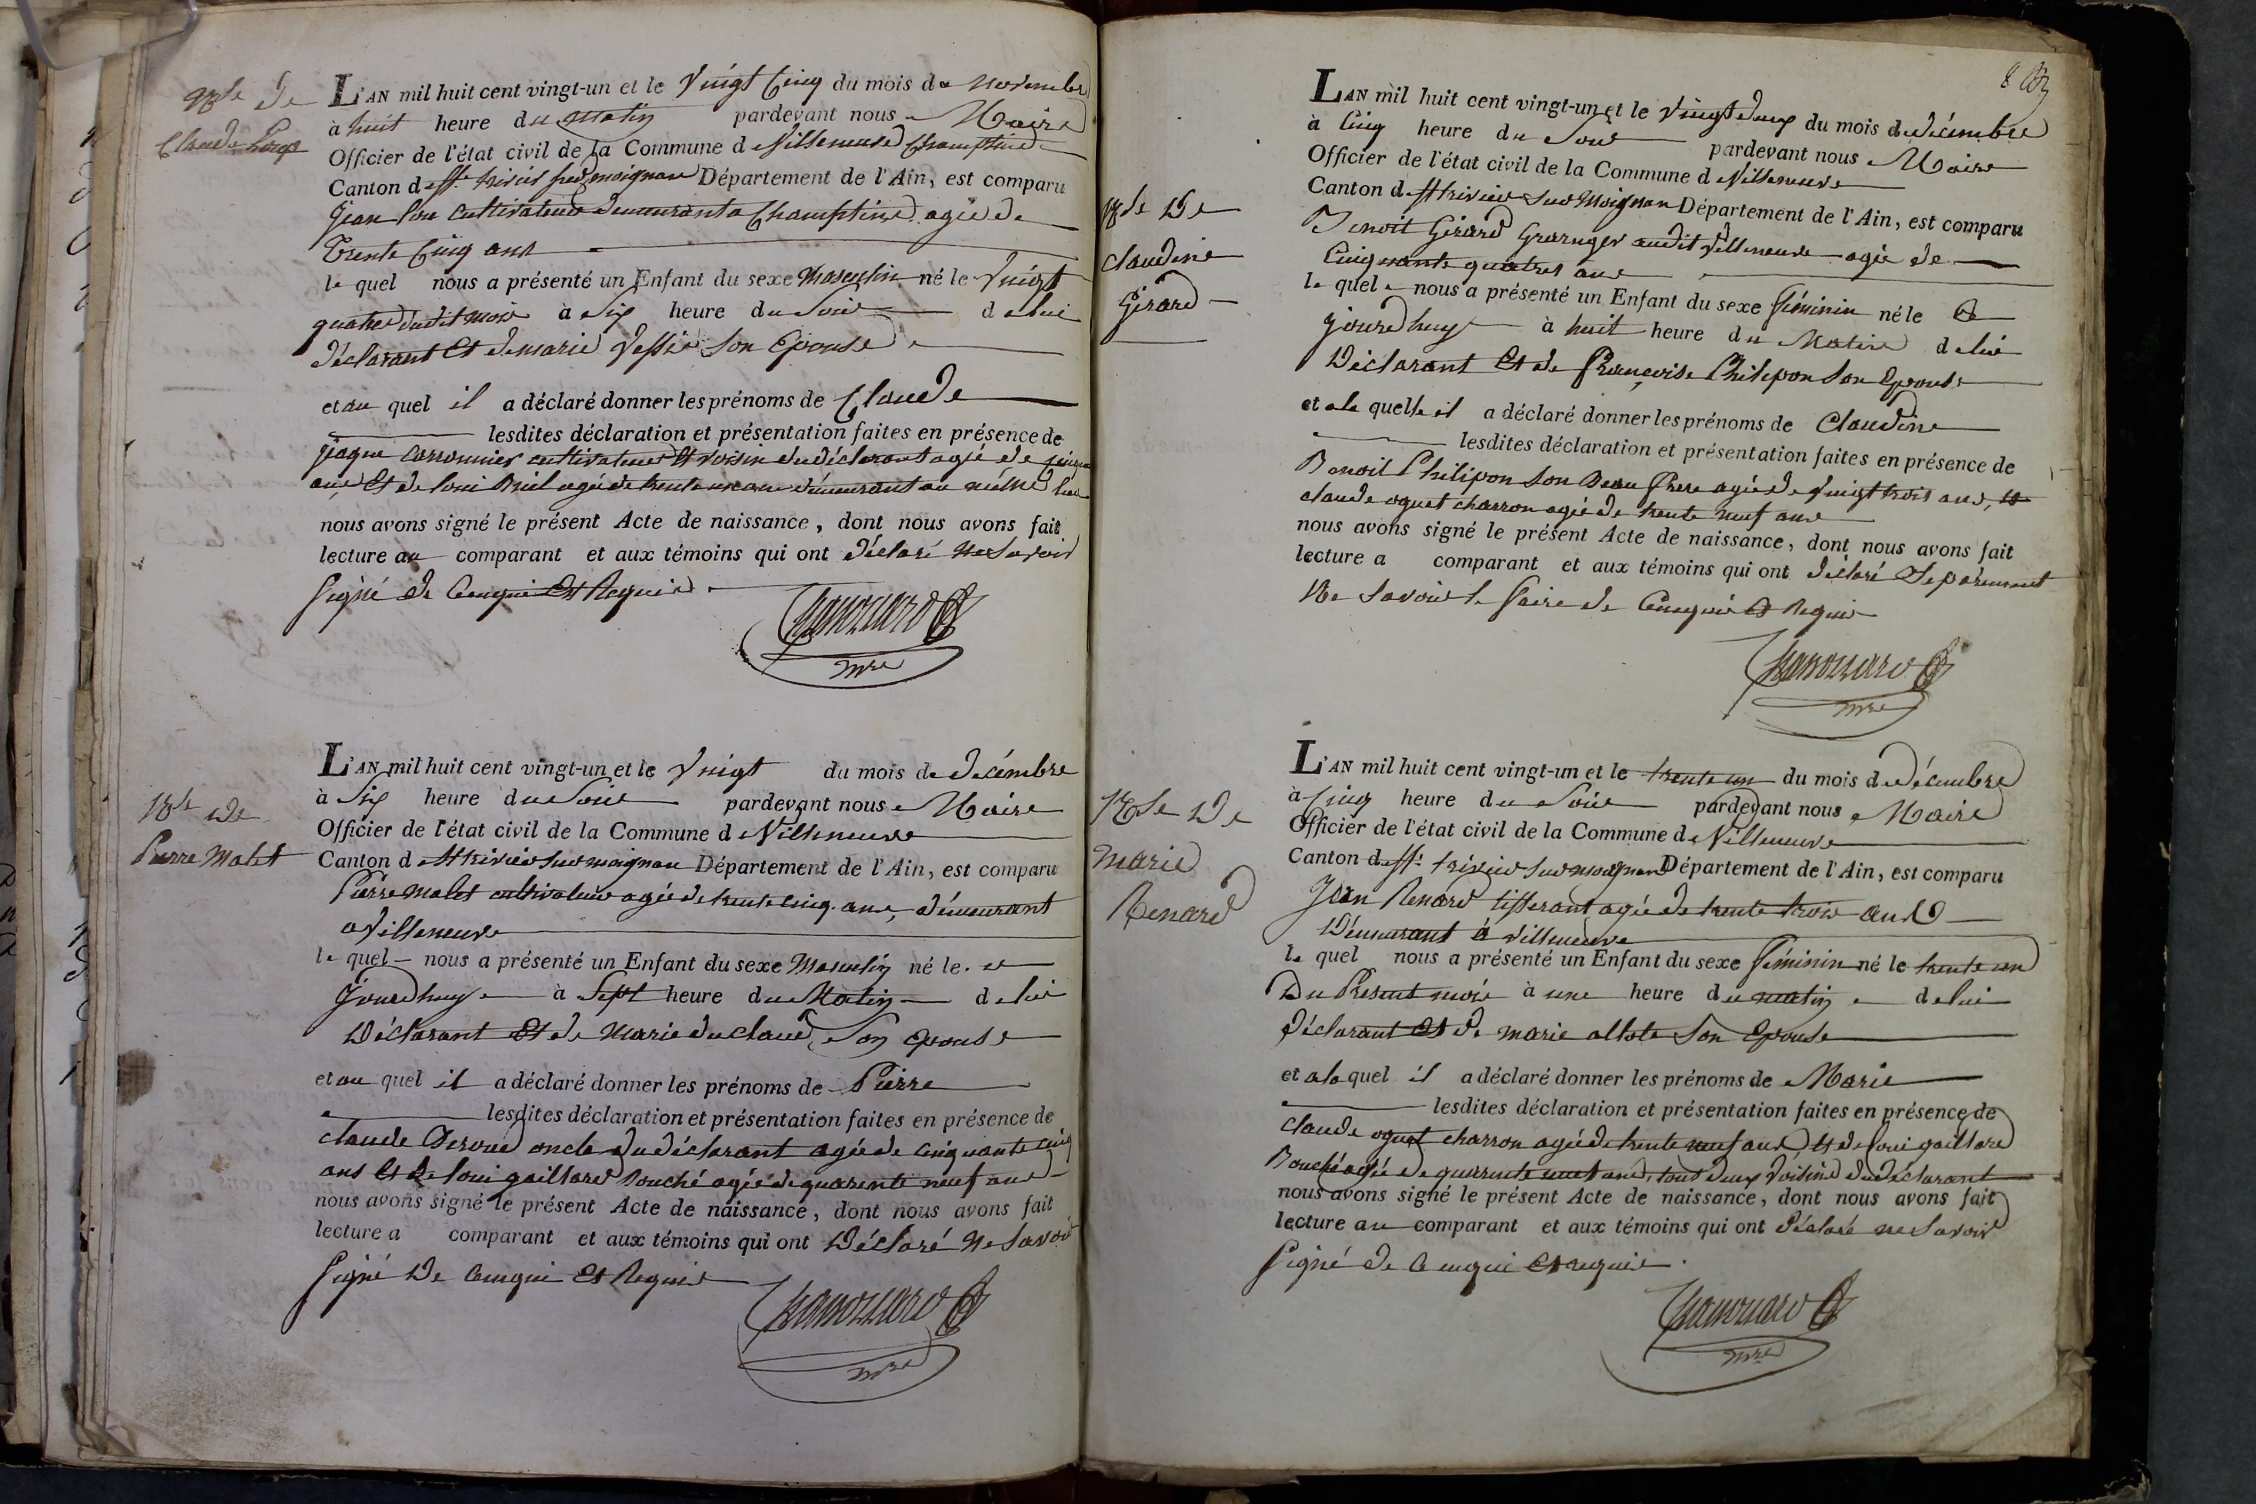 Nce de
Claude
L'AN mil huit cent vingt-un et le Vingt Cinq du mois de Novembre
à huit heure du Matin pardevant nous Maire
Officier de l'état civil de la Commune de Villeneuve Champtine
Canton de St trivier Département de l'Ain, est comparu
Jean cultivateur demeurant a Champtine agée de
trente Cinq ans
le quel nous a présenté un Enfant du sexe Masculin né le Vingt
quatre dudit mois à Six heure du Soir de lui
déclarant Et de marie Son Epouse
et au quel il a déclaré donner les prénoms de Claude
lesdites déclaration et présentation faites en présence de
Jaque cultivateur Et voisin du déclarant agée de
ans Et de Loui agée de trente demeurant au même lieu
nous avons signé le présent Acte de naissance, dont nous avons fait
lecture au comparant et aux témoins qui ont déclaré ne Savoir
Signé de Ce enquie Et Requie
Chanouard
mre
Nce de
Pierre Malet
L'AN mil huit cent vingt-un et le Vingt du mois de décembre
à Six heure du Soir pardevant nous Maire
Officier de l'état civil de la Commune de Villeneuve
Canton de St trivier Sur moignan Département de l'Ain, est comparu
Pierre Malet cultivateur agée de trente cinq ans, demeurant
a Villeneuve
le quel nous a présenté un Enfant du sexe Masculin né le
Jourdhuy à Sept heure du Matin de lui
Déclarant Et de Marie duclaud Son epouse
et au quel il a déclaré donner les prénoms de Pierre
lesdites déclaration et présentation faites en présence de
claude oncle du déclarant agée de cinquante cinq
ans Et de loui gaillard Bouché agée de quarente neuf ans
nous avons signé le présent Acte de naissance, dont nous avons fait
lecture a comparant et aux témoins qui ont Déclaré Ne Savoir
Signé De Ce enquie Et Requie
Chanouard
mre
Nce De
claudine
Girard
L'AN mil huit cent vingt-un et le Vingt deux du mois de décembre
à Cinq heure du Soir pardevant nous Maire
Officier de l'état civil de la Commune de Villeneuve
Canton de St trivier Sur Moignan Département de l'Ain, est comparu
Benoit Girard Granger audit Villeneuve agée de
Cinquante quatres ans
le quel nous a présenté un Enfant du sexe féminin né le
jourdhuy à huit heure du Matin de lui
Déclarant Et de Françoise Philipon Son Epouse
et a la quelle il a déclaré donner les prénoms de Claudine
lesdites déclaration et présentation faites en présence de
Benoit Philipon Son Beau frere agée de Vingt trois ans, Et
claude oguet charron agée de trente neuf ans
nous avons signé le présent Acte de naissance, dont nous avons fait
lecture a comparant et aux témoins qui ont déclaré Separement
Ne Savoir le faire de Ce enquie Et Requie
Chanouard
mre
Nce De
Marie
Renard
L'AN mil huit cent vingt-un et le trente un du mois de décembre
à Cinq heure du Soir pardevant nous Maire
Officier de l'état civil de la Commune de Villeneuve
Canton de St trivier Sur moignan Département de l'Ain, est comparu
Jean Renard tisserant agée de trente trois ans
Demeurant à Villeneuve
le quel nous a présenté un Enfant du sexe féminin né le trente un
Du Présent mois à une heure du matin de lui
déclarant Et de marie allote Son Epouse
et a la quel il a déclaré donner les prénoms de Marie
lesdites déclaration et présentation faites en présence de
claude oguet charron agée de trente neuf ans, Et de loui gaillard
Bouché agée de quarrente neuf ans, tous deux Voisins du déclarant
nous avons signé le présent Acte de naissance, dont nous avons fait
lecture au comparant et aux témoins qui ont Déclaré ne Savoir
Signé de Ce enquie Et requie
Chanouard
mre